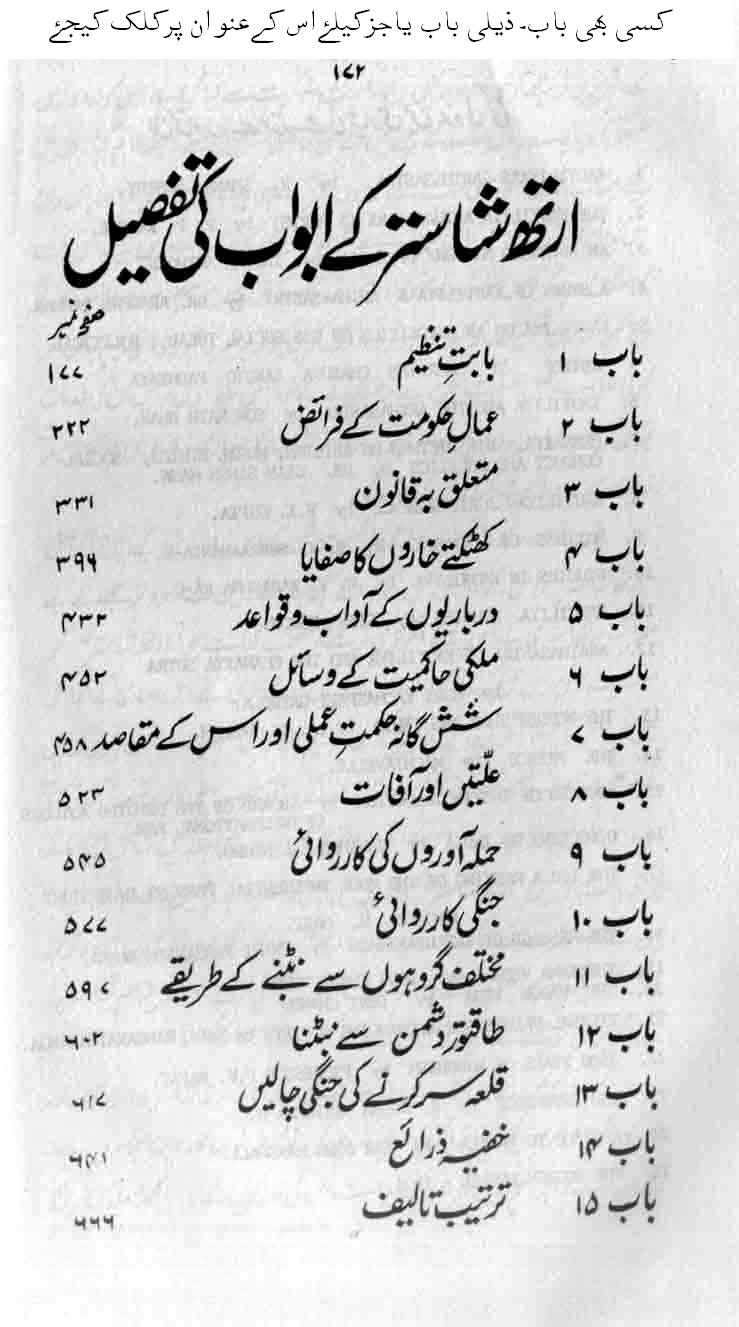 کسی بھی باب۔ ذیلی باب یا جز کیلئے اس کے عنوان پر کلک کیجئے
۱۷۲
ارتھ شاستر کے ابواب کی تفصیل
صفحہ نمبر
باب ۱ بابتِ تنظیم ۱۷۷
باب ۲ عمالِ حکومت کے فرائض ۲۲۲
باب ۳ متعلق بہ قانون ۳۳۱
باب ۴ کھٹکتے خاروں کا صفایا ۳۹۶
باب ۵ درباریوں کے آداب و قواعد ۴۳۲
باب ۶ ملکی حاکمیت کے وسائل ۴۵۲
باب ۷ شش گانہ حکمتِ عملی اور اس کے مقاصد ۴۵۸
باب ۸ علّتیں اور آفات ۵۲۳
باب ۹ حملہ آوروں کی کارروائی ۵۴۵
باب ۱۰ جنگی کارروائی ۵۷۷
باب ۱۱ مختلف گروہوں سے نبٹنے کے طریقے ۵۹۷
باب ۱۲ طاقتور دشمن سے نبٹنا ۶۰۲
باب ۱۳ قلعہ سر کرنے کی جنگی چالیں ۶۱۷
باب ۱۴ خفیہ ذرائع ۶۴۱
باب ۱۵ ترتیب تالیف ۶۶۶